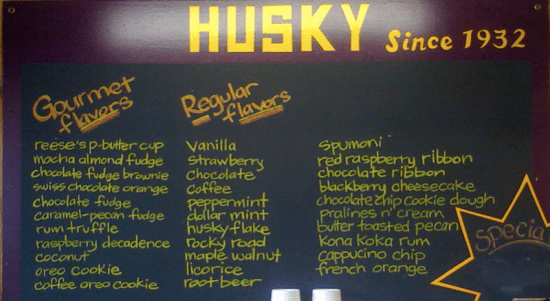 HUSKY Since 1932
Gourmet
flavors
reese's p-butter cup
mocha almond fudge
chocolate fudge brownie
swiss chocolate orange
chocolate fudge
caramel-pecan fudge
rum truffle
raspberry decadence
coconut
oreo cookie
coffee oreo cookie
Regular
flavors
vanilla
strawberry
chocolate
coffee
peppermint
dollar mint
husky flake
rocky road
maple walnut
licorice
root beer
spumoni
red raspberry ribbon
chocolate ribbon
blackberry cheesecake
chocolate chip cookie dough
pralines n' cream
butter toasted pecan
kona koka rum
cappucino chip
french orange
Specia